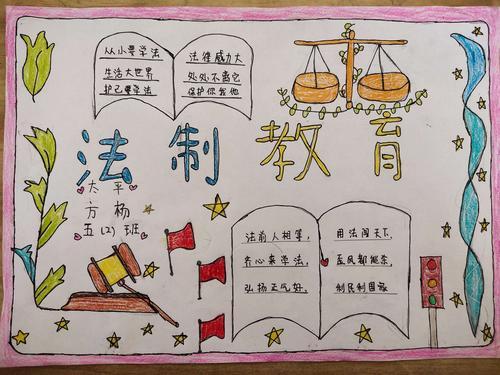 从小要学法
生活大世界
护己要学法
法律威力大
处处不离它
保护你我他
法制教育
太平
方杨
五(2)班
法前人相等,
齐心来学法,
弘扬正气好,
用法闯天下,
歪风都
利民利国家